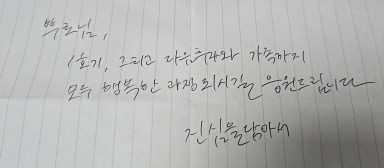 뿌흐님,
1호기, 그리고 다음호기와 가족까지
모두 행복한 과정 되시길 응원드립니다
진심을 담아서